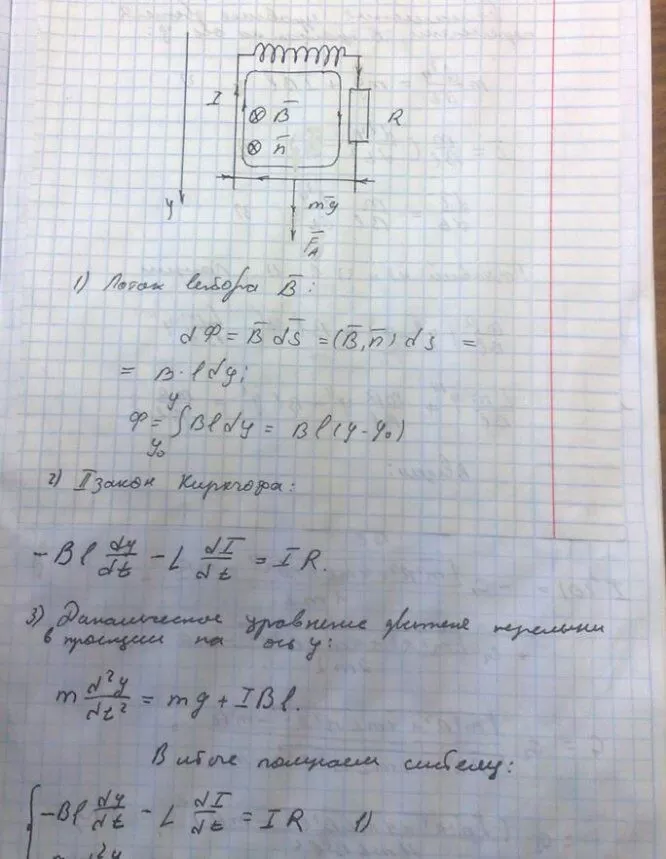 I
B̅
R
n̅
y
m̅g
F̅A
1) Поток вектора B̅:
dФ = B̅ dS̅ = (B̅, n̅) dS =
= B·l dy;
Ф = y₀∫ʸ Bl dy = Bl(y - y₀)
2) II закон Кирхгофа:
-Bl dy/dt - L dI/dt = IR.
3) Динамическое уравнение движения перемычки
в проекции на ось y:
m d²y/dt² = mg + IBl.
В итоге получаем систему:
-Bl dy/dt - L dI/dt = IR 1)